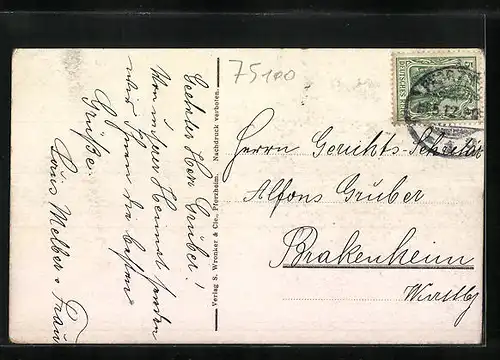 75100
Geehrter Herr Gruber!
Von unserer Heimat senden
wir Ihnen die besten
Grüße.
Louis Melber u. Frau
Verlag S. Wronker & Cie., Pforzheim. Nachdruck verboten.
DEUTSCHES REICH
Herrn Gerichts-Schreiber
Alfons Gruber
Brakenheim
Württbg